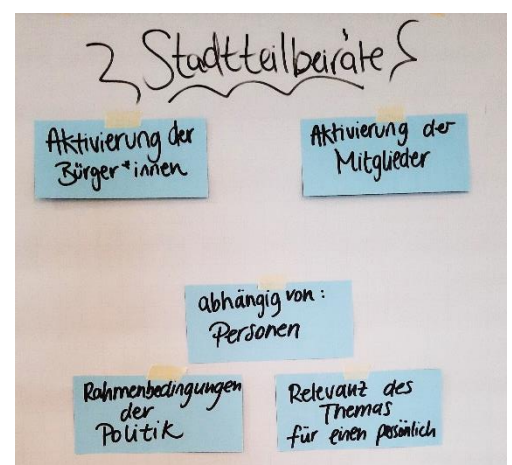 Stadtteilbeiräte
Aktivierung der
Bürger*innen
Aktivierung der
Mitglieder
abhängig von:
Personen
Rahmenbedingungen
der
Politik
Relevanz des
Themas
für einen persönlich